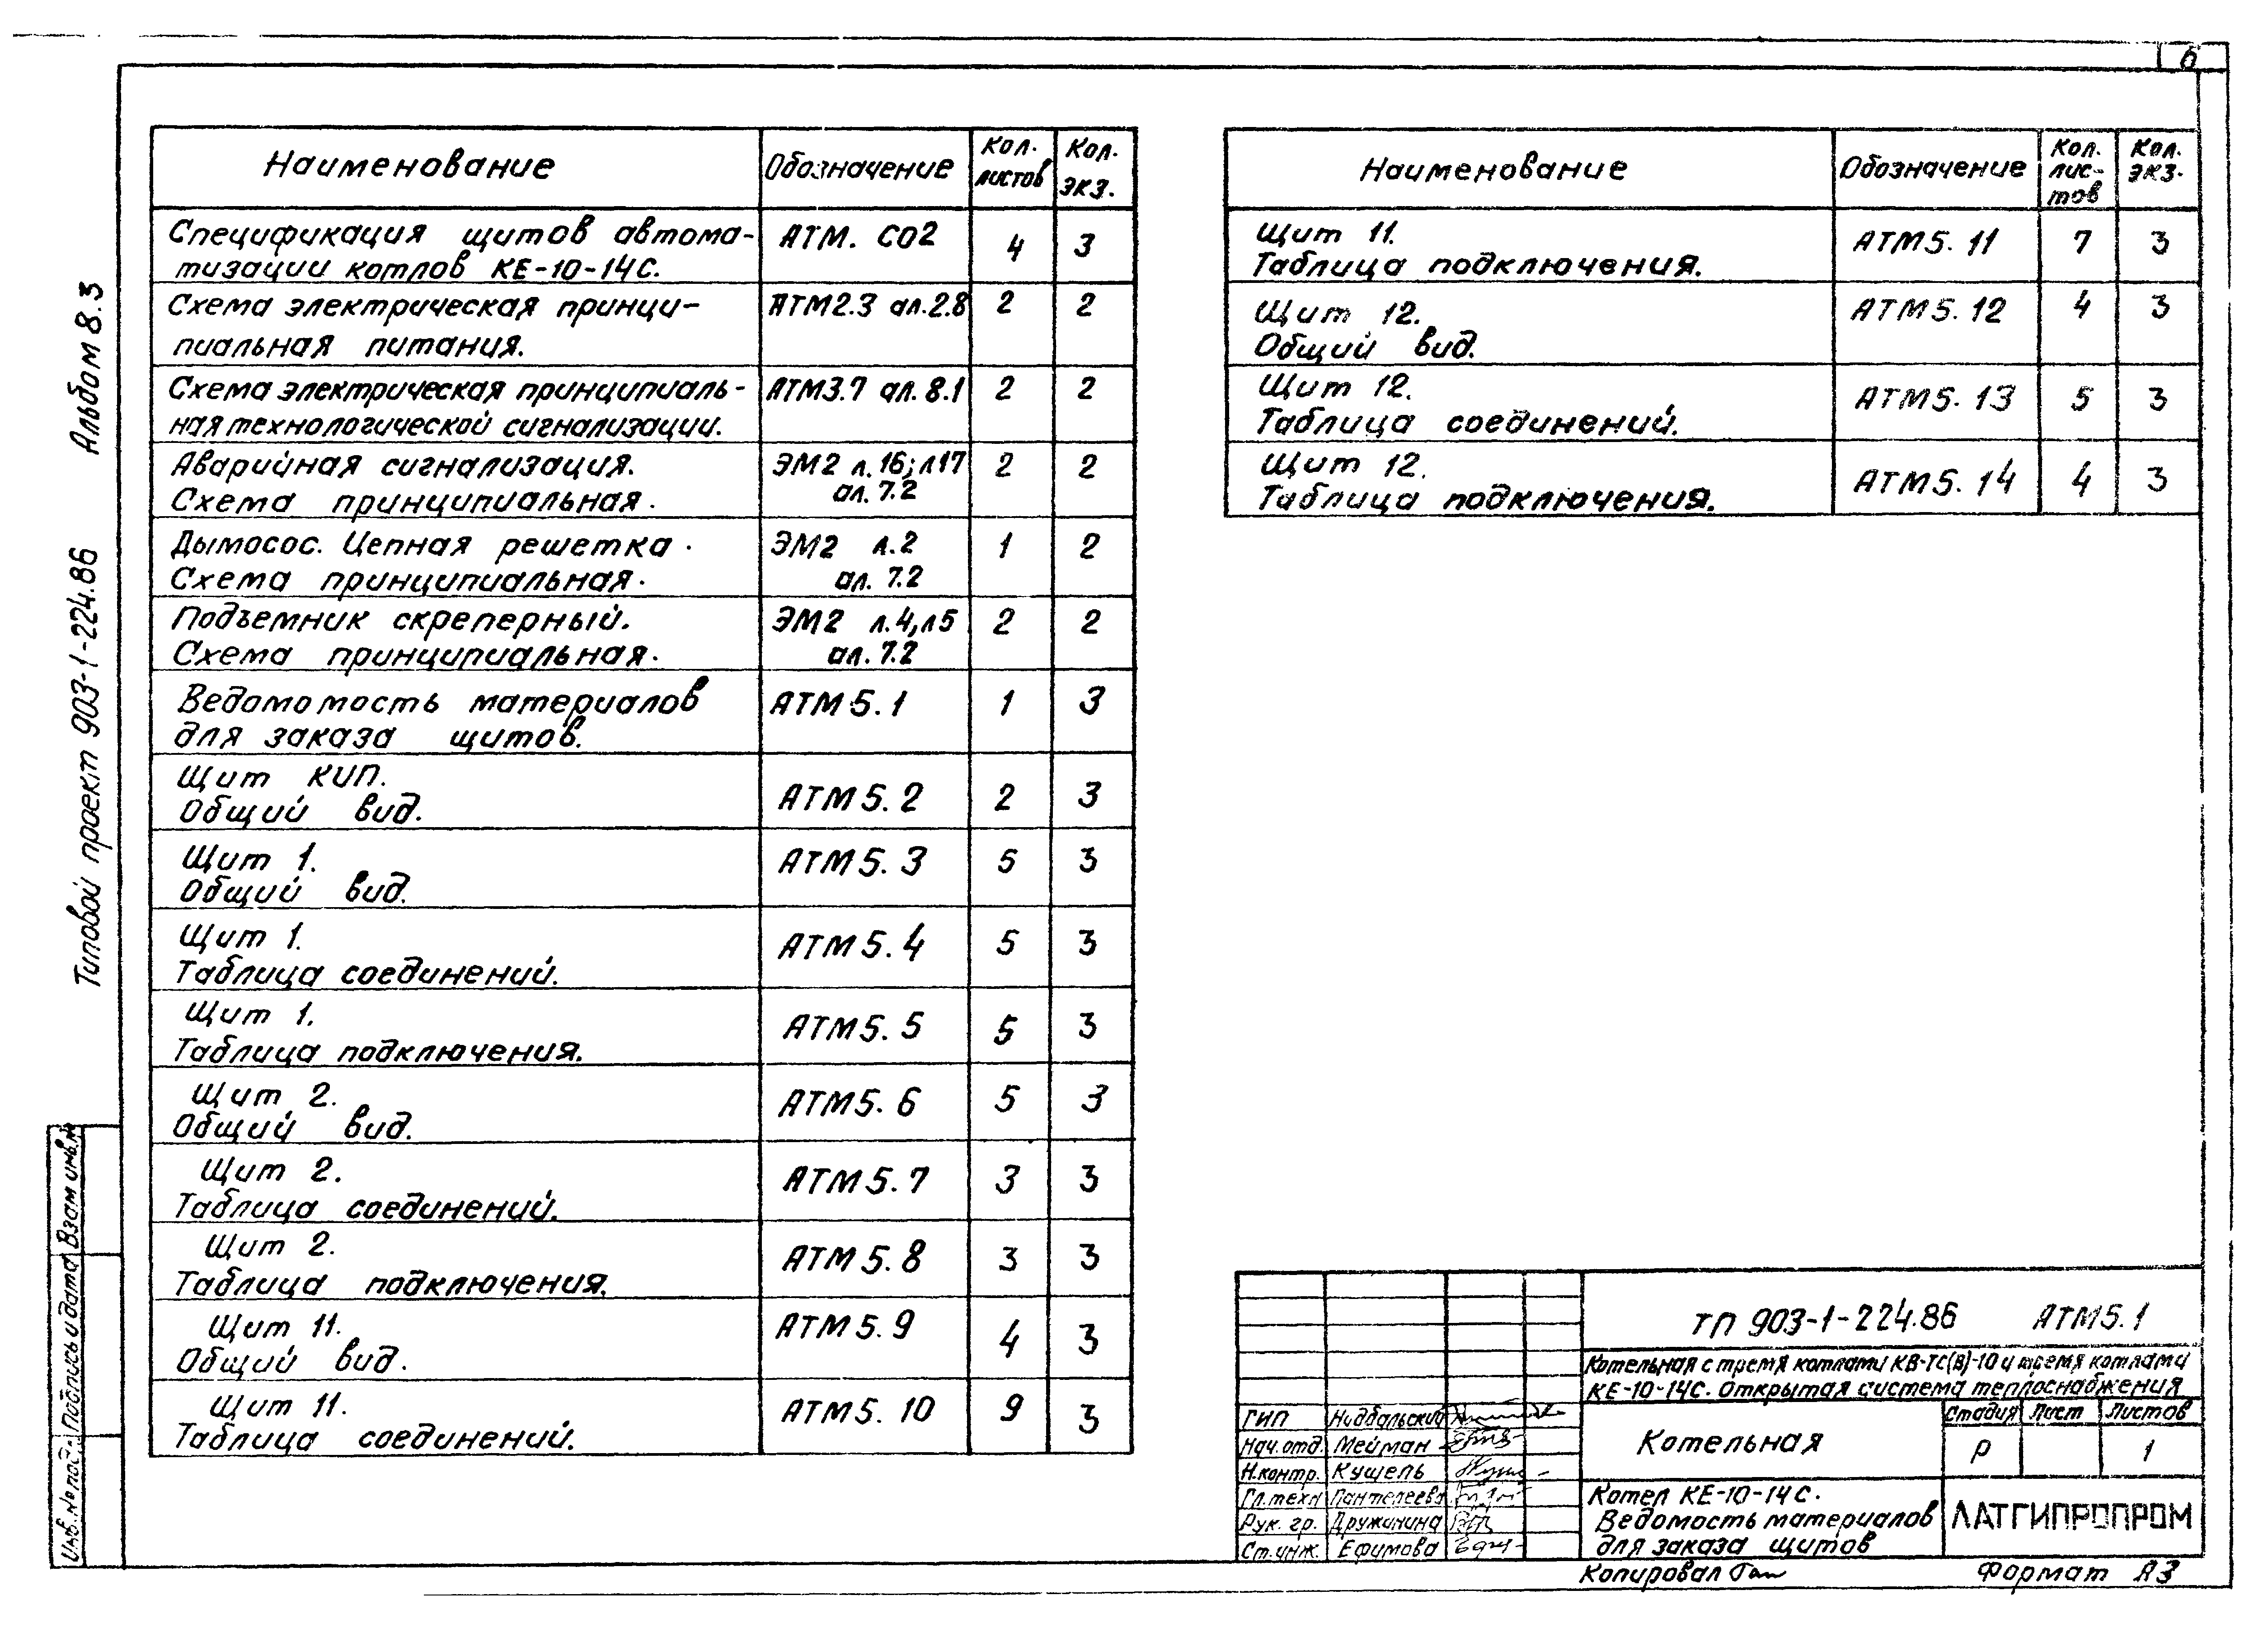 6
Альбом 8.3
Типовой проект 903-1-224.86
Наименование Обозначение Кол. листов Кол. экз.
Спецификация щитов автома- АТМ. СО2 4 3
тизации котлов КЕ-10-14С.
Схема электрическая принци- АТМ2.3 ал.2.8 2 2
пиальная питания.
Схема электрическая принципиаль- АТМ3.7 ал. 8.1 2 2
ная технологической сигнализации.
Аварийная сигнализация. ЭМ2 л.16; л17 2 2
Схема принципиальная. ал. 7.2
Дымосос. Цепная решетка. ЭМ2 л.2 1 2
Схема принципиальная. ал. 7.2
Подъемник скреперный. ЭМ2 л.4, л5 2 2
Схема принципиальная. ал. 7.2
Ведомомость материалов АТМ 5.1 1 3
для заказа щитов.
Щит КИП. АТМ 5.2 2 3
Общий вид.
Щит 1. АТМ 5.3 5 3
Общий вид.
Щит 1. АТМ 5.4 5 3
Таблица соединений.
Щит 1. АТМ 5.5 5 3
Таблица подключения.
Щит 2. АТМ 5.6 5 3
Общий вид.
Щит 2. АТМ 5.7 3 3
Таблица соединений.
Щит 2. АТМ 5.8 3 3
Таблица подключения.
Щит 11. АТМ 5.9 4 3
Общий вид.
Щит 11. АТМ 5.10 9 3
Таблица соединений.
Наименование Обозначение Кол. лис- тов Кол. экз.
Щит 11. АТМ 5.11 7 3
Таблица подключения.
Щит 12. АТМ 5.12 4 3
Общий вид.
Щит 12. АТМ 5.13 5 3
Таблица соединений.
Щит 12. АТМ 5.14 4 3
Таблица подключения.
Инв. № подл. Подпись и дата Взам инв.№
ТП 903-1-224.86 АТМ 5.1
Котельная с тремя котлами КВ-ТС(В)-10 и тремя котлами
КЕ-10-14С. Открытая система теплоснабжения
ГИП Нидбальский
Нач. отд. Мейман
Н.контр. Кущель
Гл.техн Пантелеева
Рук. гр. Дружинина
Ст.инж. Ефимова
Котельная
Стадия Лист Листов
Р 1
Котел КЕ-10-14С.
Ведомость материалов
для заказа щитов
ЛАТГИПРОПРОМ
Копировал
Формат А3